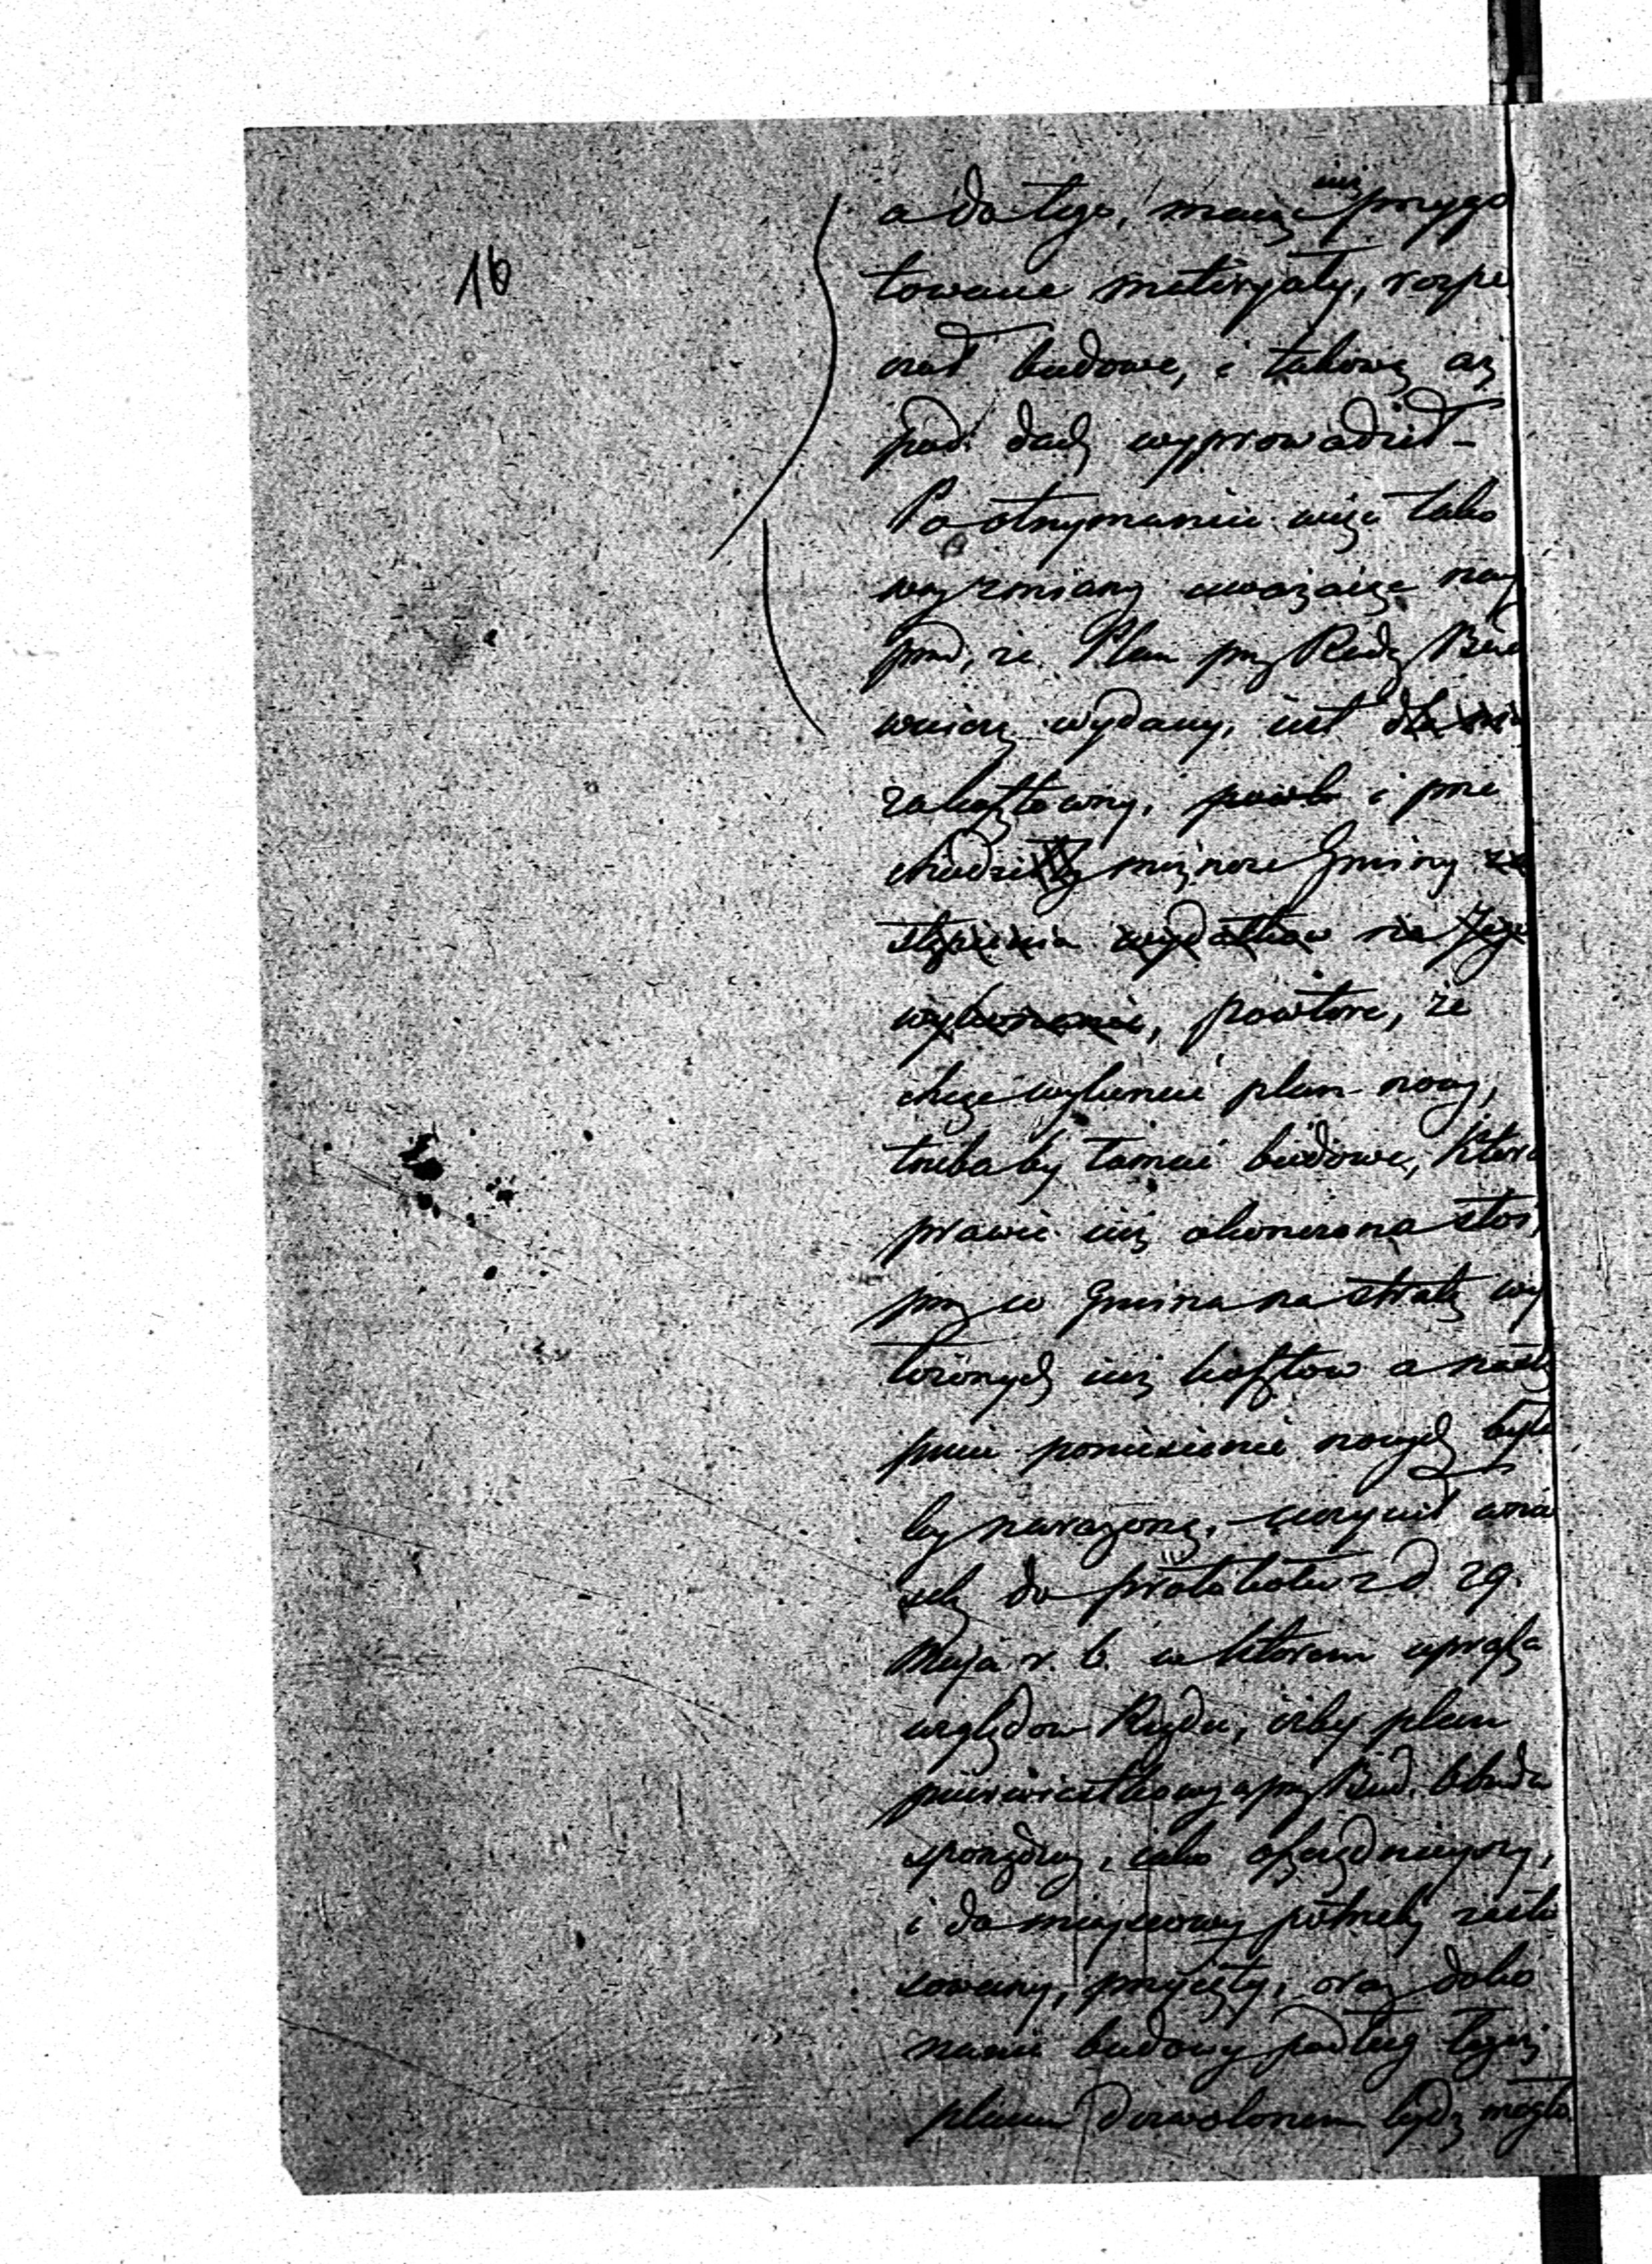 16
a do tego, maiąc iuż przygo
towane materyały, rozpo
czął budowę, i takową aż
pod dach wyprowadził –
Po otrzymaniu więc tako
wey zmiany uważaiąc nay
przód, że Plan przy Radzie Budo
wniczey wydany, iest dla niey
zakosztowny, i prze
chodzi możność Gminy
stąpienia wydatków na jego
wykonanie, powtóre, że
chcąc wykonać plan nowy,
trzebaby łamać budowę, która
prawie iuż ukończona stoi,
przy co Gmina na stratę wy
łożonych iuż kosztów a nastę
pnie poniesienie nowych była
by narażoną, uczynił wnio
sek do protokołu z d 29
Maja r. b. w ktorem uprasza
względów Rządu, iżby plan
pierwiastkowy przy Bud. Obwodu
sporządzony, iako oszczędnieyszy,
i do mieyscowey potrzeby zasto
sowany, przyięty, oraz doko
nanie budowy podług tegoż
planu dozwolonem bydź mogło